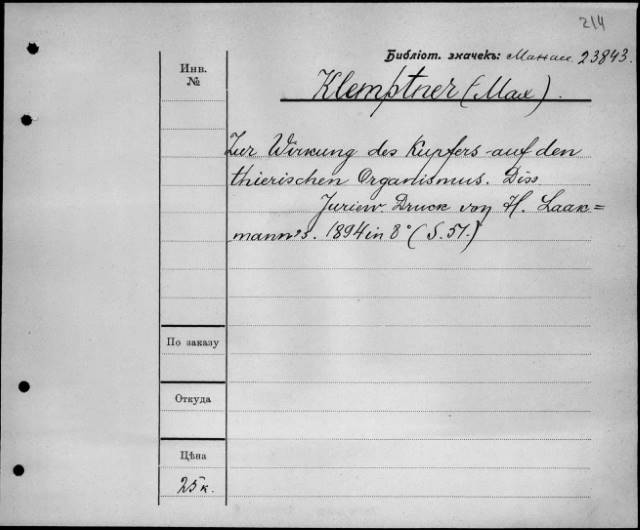 214
Библіот. значекъ: Манас. 23843.
Инв.
№
Klemptner (Max).
Zur Wirkung des Kupfers auf den
thierischen Organismus. Diss.
Juriew. Druck von H. Laak=
mann's. 1894 in 8° (S. 51.)
По заказу
Откуда
Цѣна
25 к.